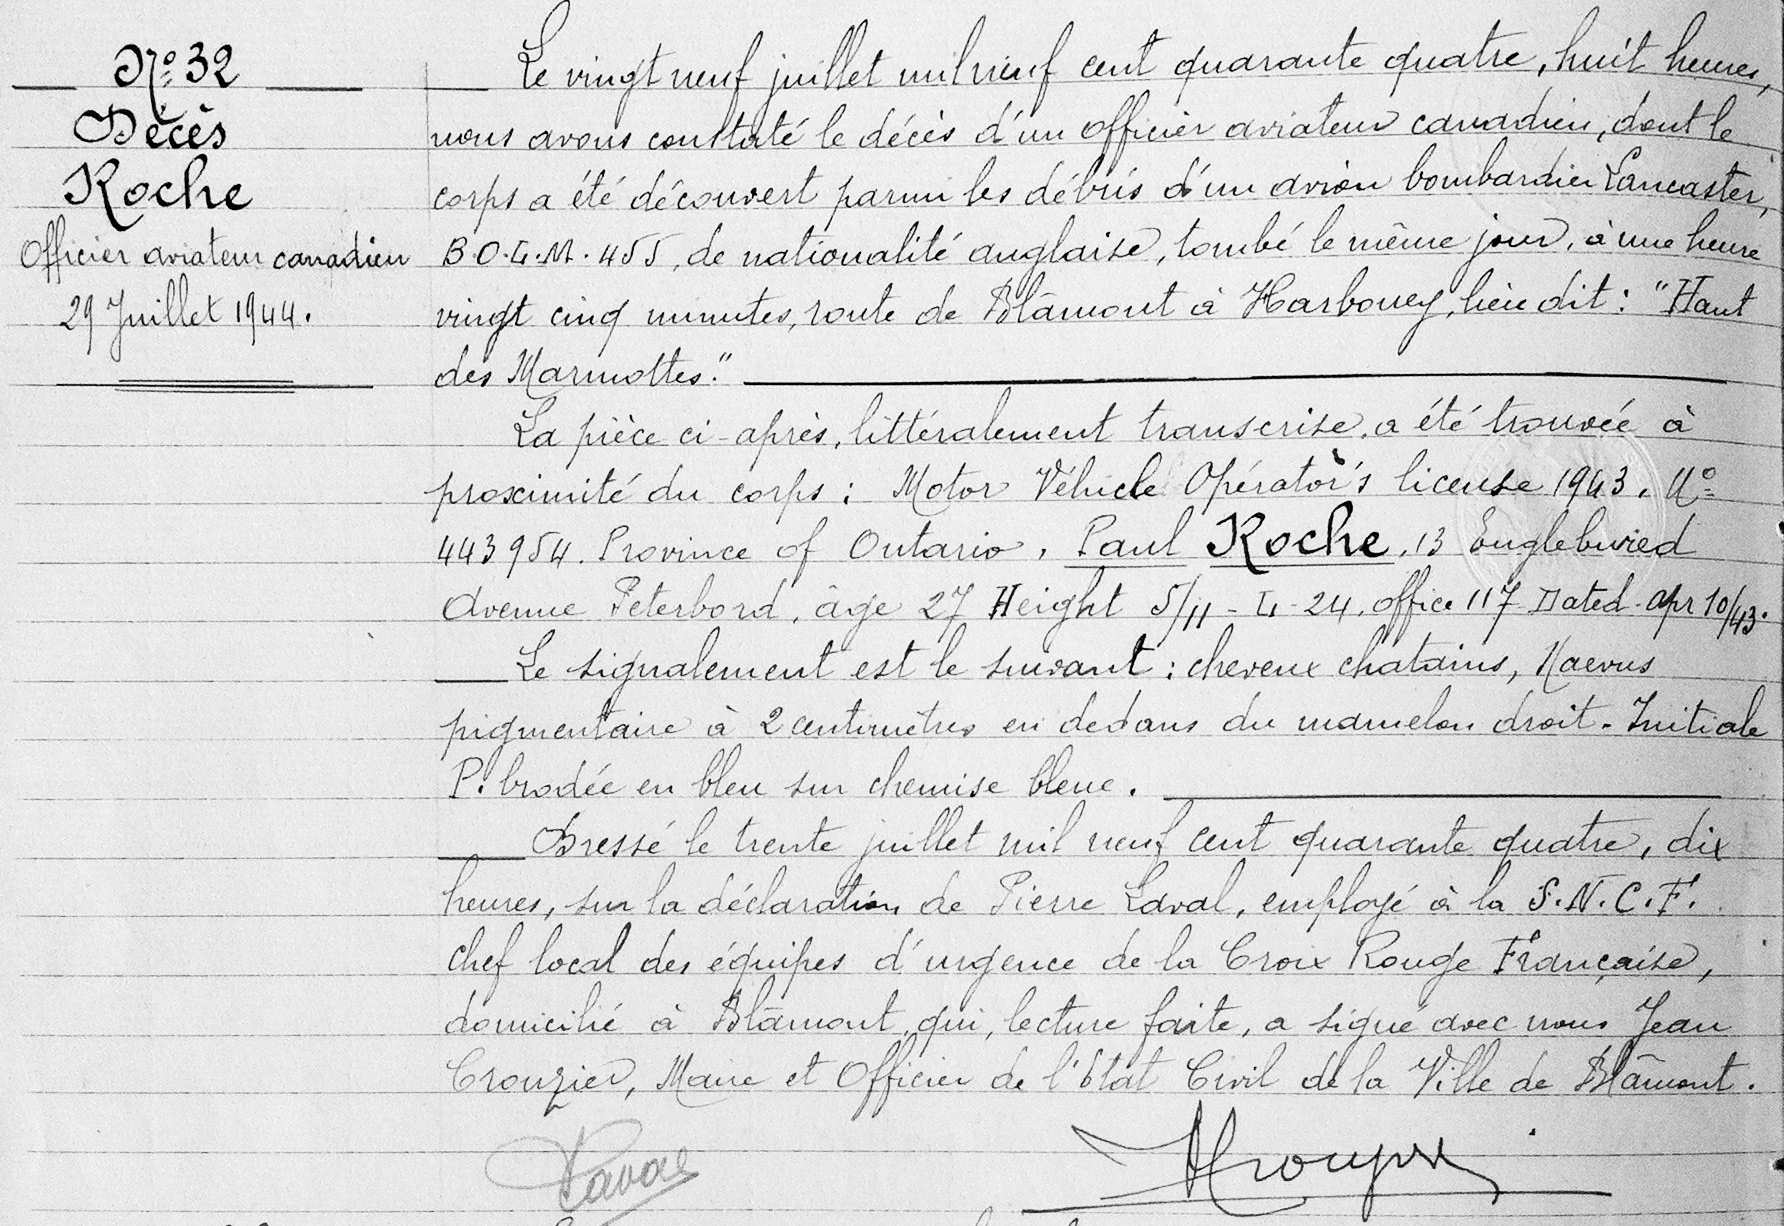 N° 32
Décès
Roche
Officier aviateur canadien
29 Juillet 1944.
Le vingt neuf juillet mil neuf cent quarante quatre, huit heures,
nous avons constaté le décès d'un officier aviateur canadien, dont le
corps a été découvert parmi les débris d'un avion bombardier Lancaster,
B.O.L.M. 455, de nationalité anglaise, tombé le même jour, à une heure
vingt cinq minutes, route de Blâmont à Harbouey, lieu dit : "Haut
des Marmottes."
La pièce ci-après, littéralement transcrise, a été trouvée à
proximité du corps : Motor Véhicle Opérator's license 1943. N°
443954. Province of Ontario, Paul Roche, 13 Engleburied
Avenue Peterbord, âge 27 Height 5/11 - L - 24. office 117 Dated - apr 10/43.
Le signalement est le suivant : cheveux chatains, Naevus
pigmentaire à 2 centimètres en dedans du mamelon droit - Initiale
P. brodée en bleu sur chemise bleue.
Dressé le trente juillet mil neuf cent quarante quatre, dix
heures, sur la déclaration de Pierre Laval, employé à la S.N.C.F.
chef local des équipes d'urgence de la Croix Rouge Française,
domicilié à Blâmont, qui, lecture faite, a signé avec nous Jean
Crouzier, Maire et Officier de l'Etat Civil de la Ville de Blâmont.
Laval
JCrouzier